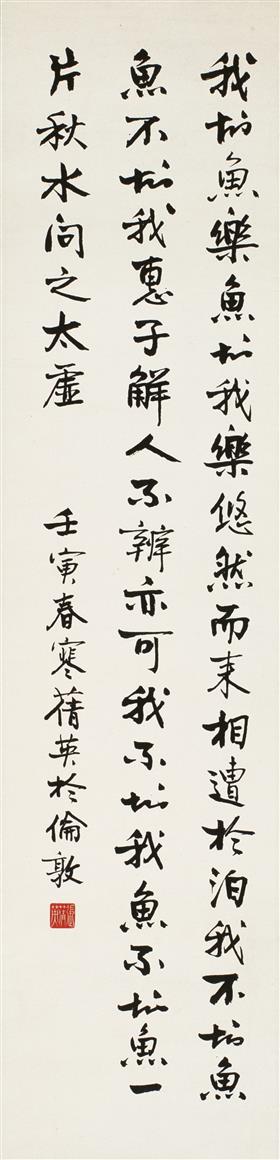 我知魚樂魚知我樂悠然而來相遭於泊我不知魚
魚不知我惠子解人不辨亦可我不知我魚不知魚一
片秋水問之太虛
壬寅春寒蒨英於倫敦